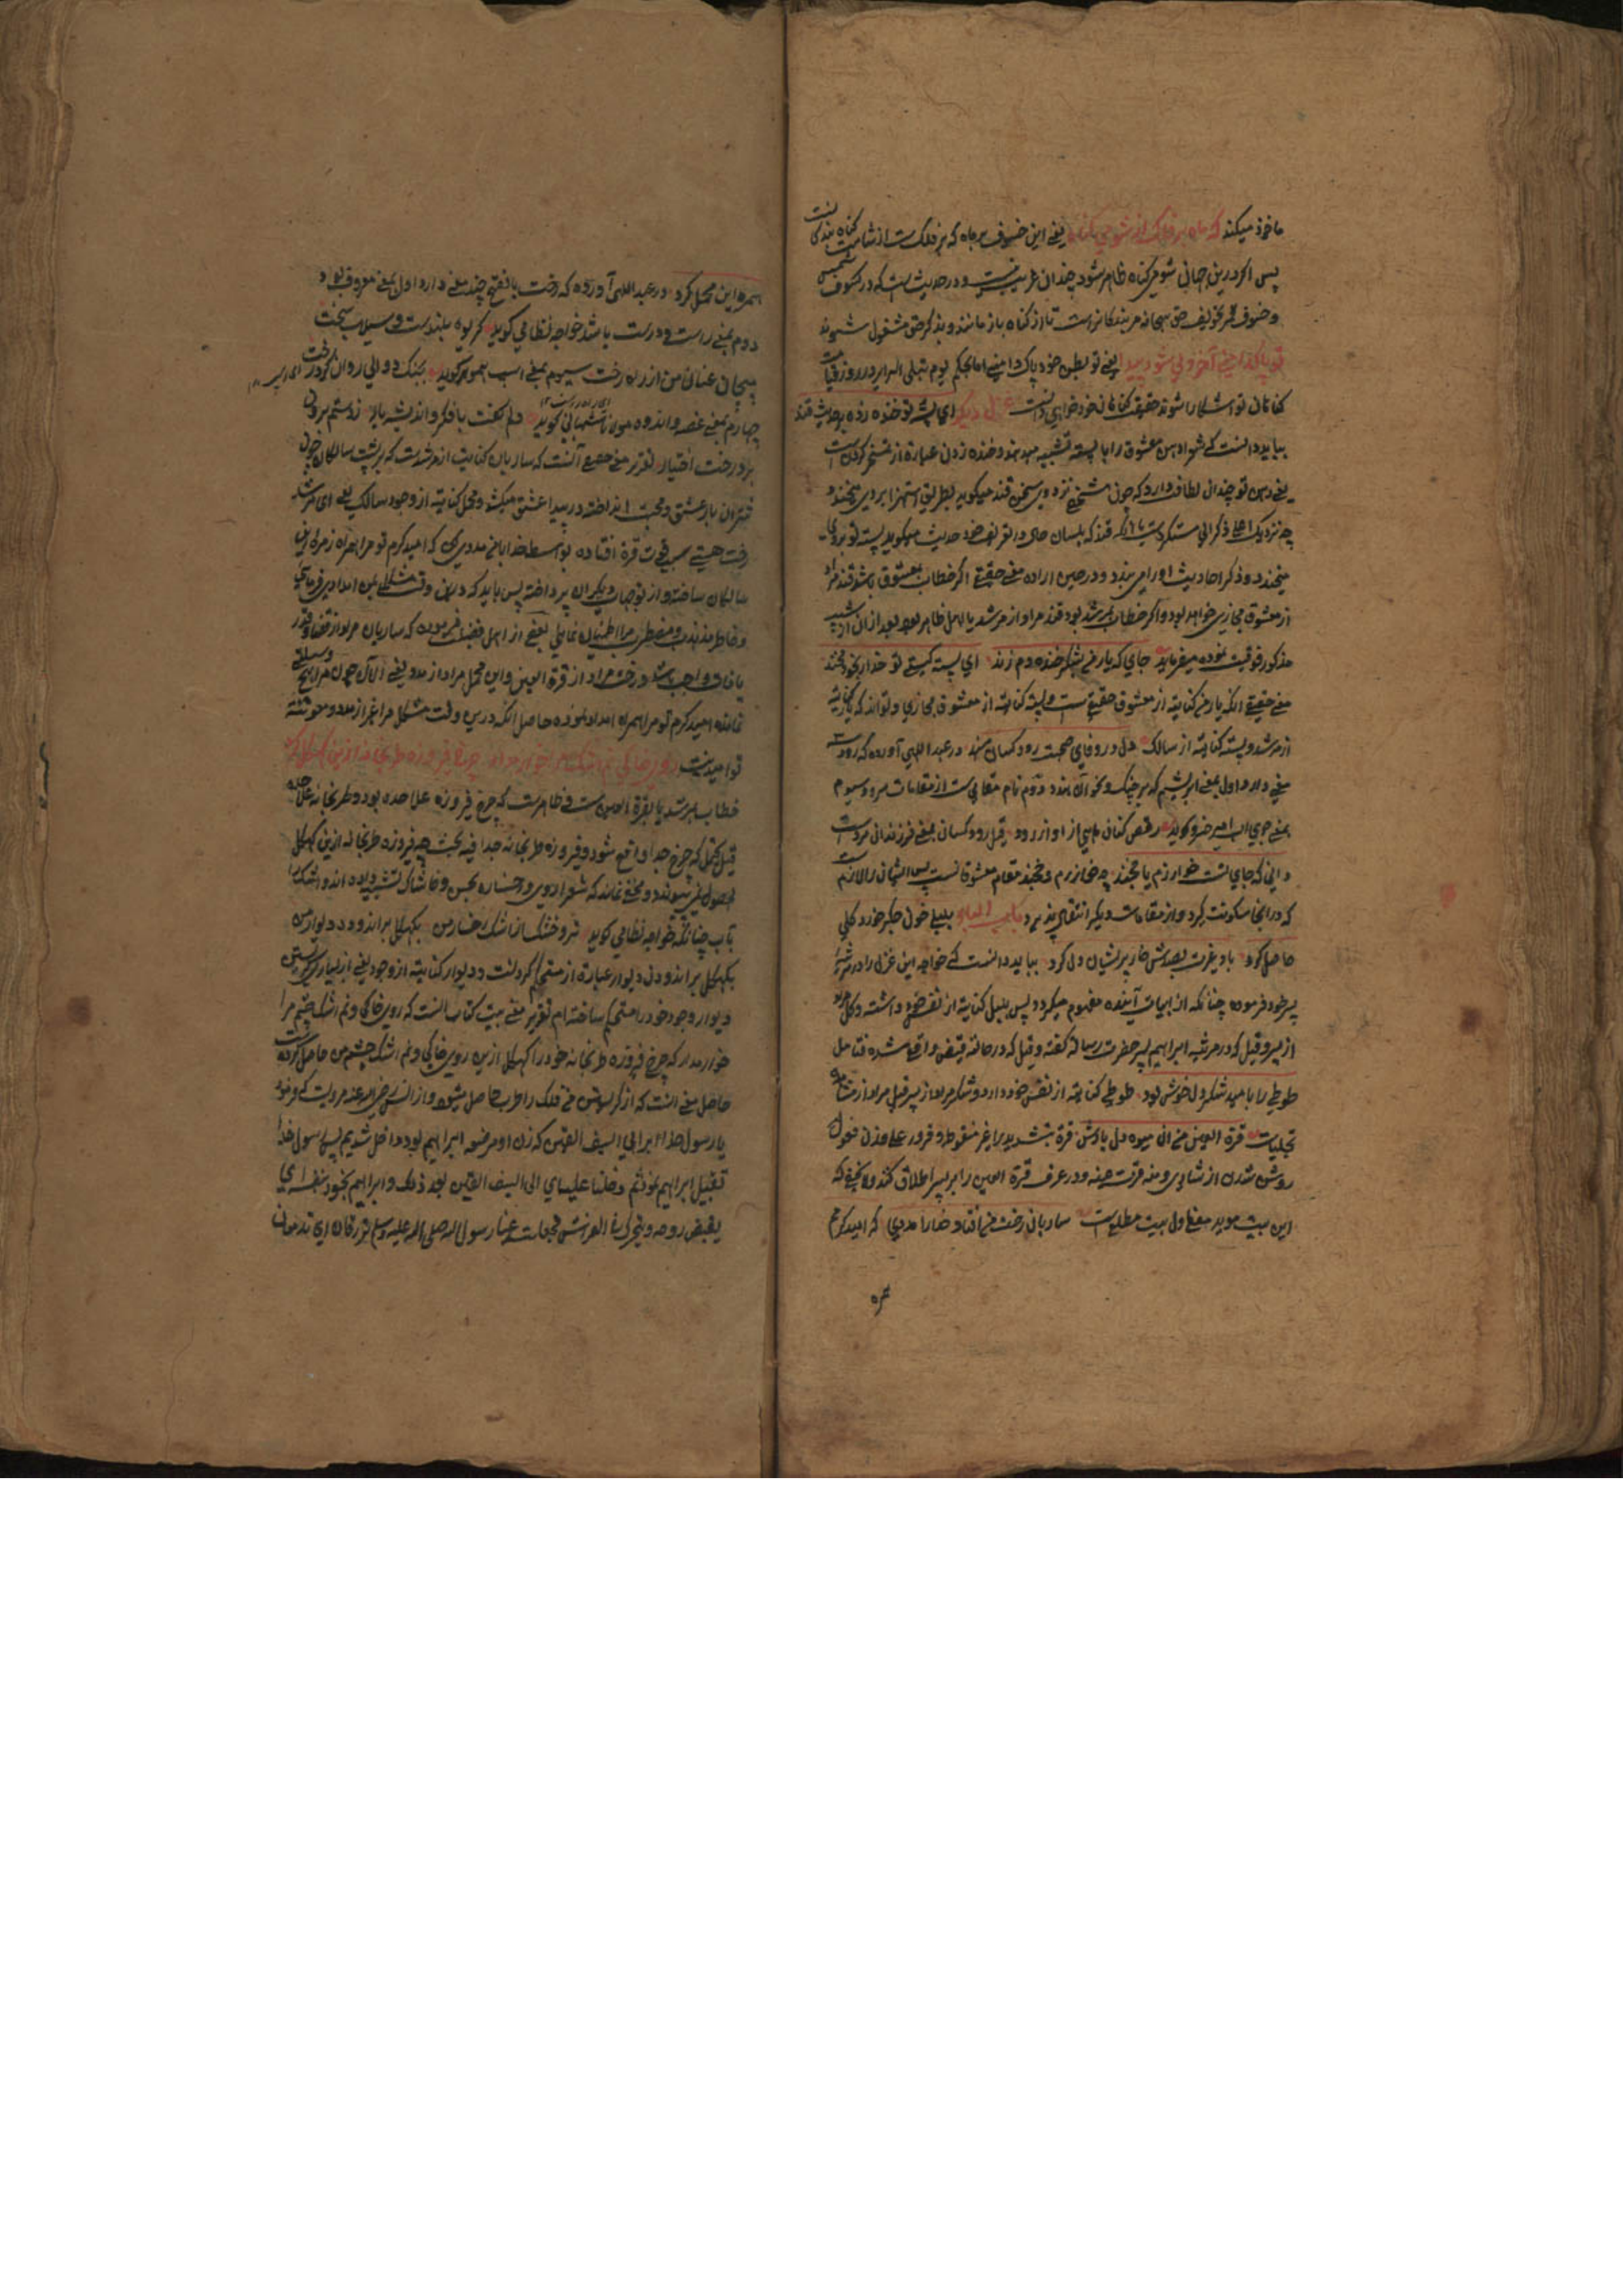 ماخوذ میکند که ماه بر فلک از شومی گناه یعنی این خسوف بر ماه که بر فلک ست از شامت گناه بندگان ست
پس اگر درین جهانی شومی گناه ظاهر شود چندان غریب نیست و در حدیث ست که در کسوف شمس
و خسوف قمر تخویف حق سبحانه مر بندگانراست تا از گناه باز مانند و بذکر حق مشغول شوند
یعنی تو بطن خود پاک دامنی امابحکم یوم تبلی السرایر در روز قیامت
گناهان تو آشکارا شوند حقیقت گناهان خود خواهی دانست غزل دیگر ای پسته تو خنده زده بر حدیث قند
بباید دانست که شعرا دهن معشوق را با پسته تشبیه میدهند و خنده زدن عبارة از تمسخر کردن ست
یعنی دهن تو چندان لطافت دارد که چون شخصی نزد وی سخن قند میگوید بطریق استهزا بروی میخندد
چه نزدیک احلی ذکر ادنی مستکره ست یا آنکه قند که بلسان حال در تعریف خود حدیث میگوید پسته تو بروی
میخندد و ذکر احادیث او را می بندد و در حین اراده معنی حقیقی اگر خطاب بمعشوق باشد قند مراد
از معشوق مجازی خواهد بود و اگر خطاب بمرشد بود قند مراد از مرشد یا اهل ظاهر بود بعد ازان از تشبیه
مذکور فوقیت نموده میفرماید جای که یار من بشکر خنده دم زند ای پسته کیستی تو خدا را بخود مخند
معنی حقیقی آنکه یار من کنایة از معشوق حقیقی ست و پسته کنایة از معشوق مجازی و تواند که یار کنایة
از مرشد و پسته کنایة از سالک دل در وفای صحبت رود کسان مبند در عبداللهی آورده که رود سه
معنی دارد اول بمعنی ابریشم که بر چنگ و نحو آن بندند دوم نام مقامی ست از مقامات سرود سیوم
بمعنی جوی آب امیر خسرو گوید رقص کنان ماهی از آواز رود قیل رود کسان بمعنی فرزندان مردم ست
دانی که جای تست خوارزم یا خجند چه خوارزم و خجند مقام معشوقانست پس ایشان را لازم ست
که در آنجا سکونت گیرد و از مقامات دیگر انتقال پذیرد بلبلی خون جگر خورد و گلی
حاصل کرد باد غیرت بصدش خار پریشان دل کرد بباید دانست که خواجه این غزل را در مرثیه
پسر خود فرموده چنانکه از ابیات آینده مفهوم میگردد پس بلبل کنایة از نفس خود داشته و گل مراد
از پسر و قیل که در مرثیه ابراهیم پسر حضرت رسالة گفته و قیل که در حالة قبض واقع شده فتامل
طوطی را بامید شکر دل خوش بود طوطی کنایة از نفس خود دارد و شکر مراد از پسر قیل مراد از مشاهده
تجلیات قرة العین من آن میوه دل یادش قرة بتشدید را غیر منقوطه و قرور علی وزن فعول
روشن شدن از شادی و منه قرت عینه و در عرف قرة العین را بر پسر اطلاق کنند ولا یخفی که
این بیت موید معنی اول بیت مطلع ست ساربان رخت من افتاد خدا را مددی که امید کرم
همره
همره این محمل کرد در عبداللهی آورده که رخت بالفتح چند معنی دارد اول بمعنی معروف بود
دوم بمعنی راست و درست باشد خواجه نظامی گوید گریوه بلندست و سیلاب سخت
مپیچان عنان من از راه رخت سیوم بمعنی اسپ همو گوید
چهارم بمعنی غصه و اندوه مولانا گوید دلم گفت با فکر و اندیشه یار
تقریر معنی حقیقی آنست که ساربان کنایت از مرشدست که بر پشت سالکان چون
شتران بار عشق و محبت انداخته در بیداء عشق میکشد و محمل کنایة از وجود سالک یعنی ای مرشد
رخت هستی بسبب فوت قرة افتاده بواسطه خدا با من مددی کن که امید کرم تو مرا همراه زمره این
سالکان ساخته و از توجهات دیگران پرداخته پس باید که درین وقت مشکل بمن امداد بفرمای
و خاطر مذبذب و مضطرب مرا اطمینان نمای بعضی از اهل فضل فرموده که ساربان مراد از قضا و قدر
و رخت مراد از قرة العین و این محمل مراد از مدد یعنی الآن چون مرا هیچ وسیلتی
نمانده امید کرم تو مرا همراه امداد نموده حاصل آنکه درین وقت مشکل مرا غیر از مدد و معونت
تو امید نیست روی خاکی و نم اشک مرا خوار مدار چرخ فیروزه طربخانه ازین کهگل کرد
خطاب بمرشد یا بقرة العین ست و ظاهرست که چرخ فیروزه علاحده بود و طربخانه علاحده
قیل یحتمل که چرخ جدا واقع شود و فیروزه طربخانه جدا فیه بحث چه فیروزه طربخانه ازین کهگل
حصول نمی شوند و مخفی نماند که شعرا روی و رخساره بخس و خاشاک تشبیه داده اند و اشک را
بآب چنانکه خواجه نظامی گوید تر و خشک از اشک رخسار من بکهگل براندود دیوار من
بکهگل براندودن دیوار عبارة از مستحکم کردنست و دیوار کنایة از وجود یعنی از بسیار گریستن
دیوار وجود خود را مستحکم ساخته ام تقریر معنی بیت کتاب آنست که روی خاکی و نم اشک چشم مرا
خوار مدار که چرخ فیروزه طربخانه خود را کهگل ازین روی خاکی و نم اشک چشم من حاصل کرده ست
حاصل معنی آنست که از گریستن من فلک را طرب حاصل میشود و از انس رضی الله عنه مرویست که وی فرمود
یا رسول خدا بر ابی السیف القین که زن او مرضعه ابراهیم بود داخل شدیم پس رسول خدا
تقبیل ابراهیم نمود ثم دخلنا علیه الی السیف القین بعد ذلک و ابراهیم یجود بنفسه ای
یقبض روحه و یتحرک فی الفراش فجعلت عینا رسول الله صلی الله علیه و سلم تذرفان ای تدمعان